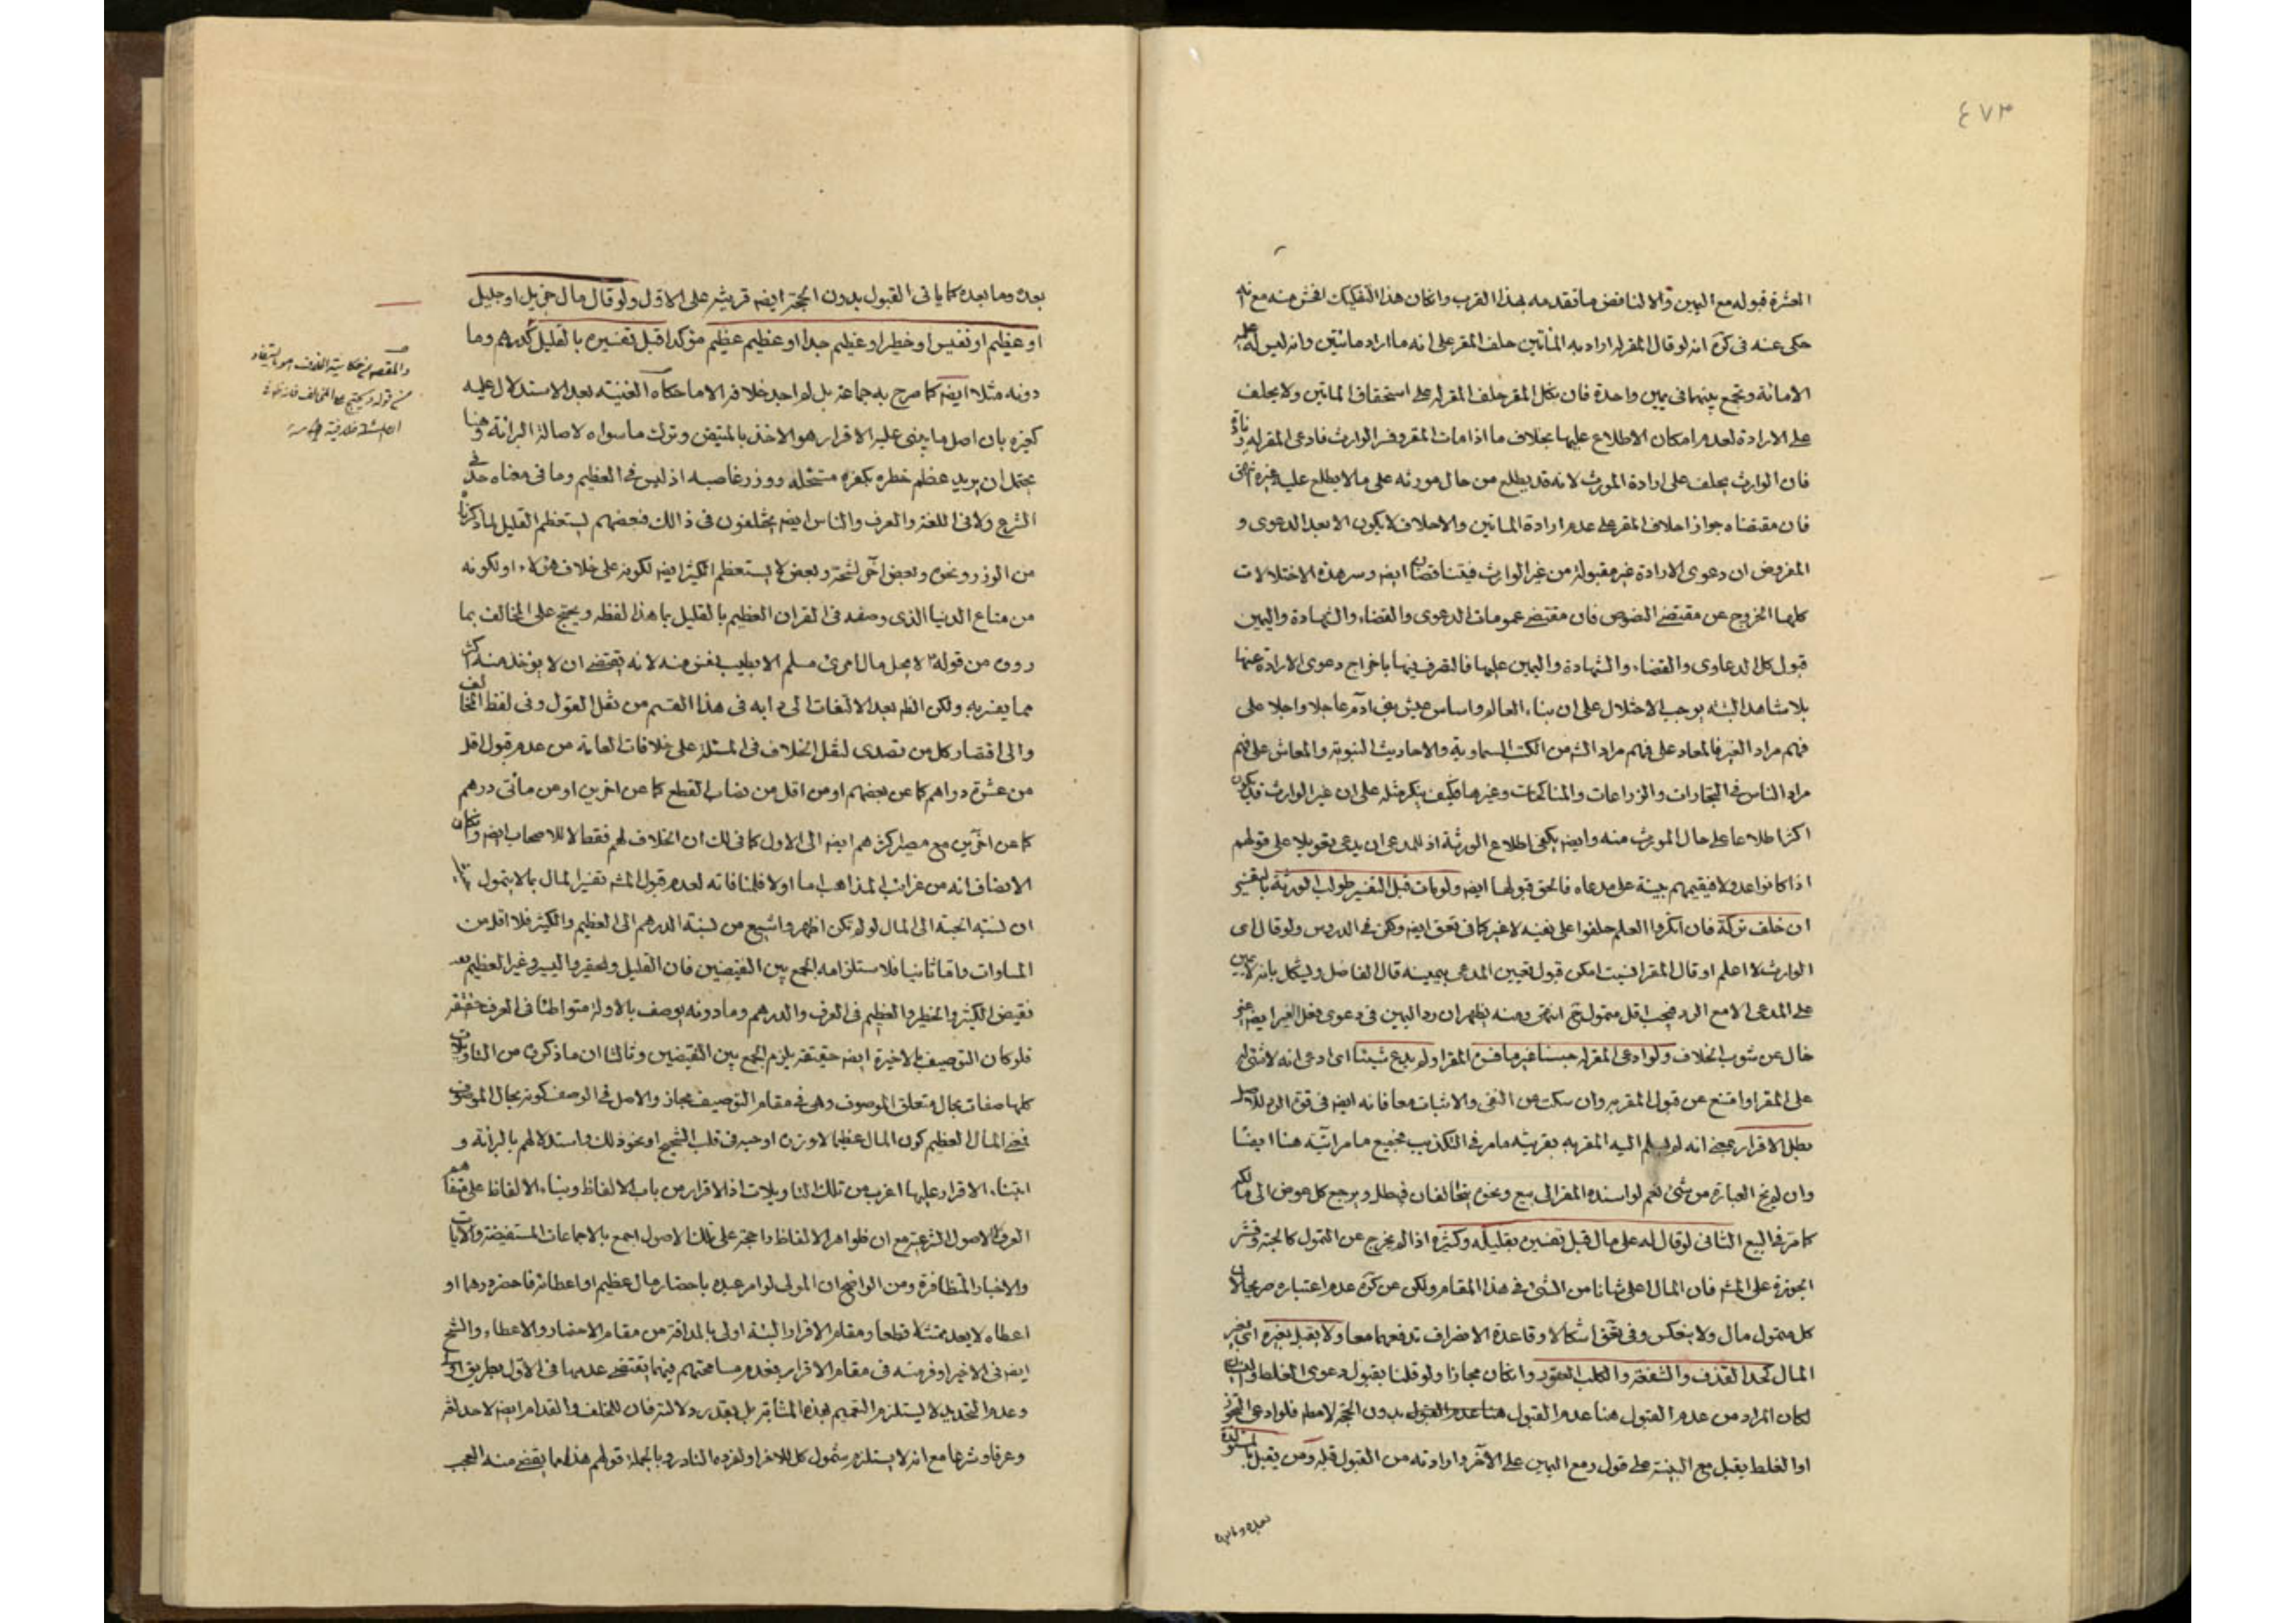 ٤٧٣
العشرة قبوله مع اليمين والا لناقض ما تقدمه بهذا القرب وان كان هذا التفكيك افحش منه مع انه
حكى عنه فى كره انه لو قال المقر له اراد به المأتين حلف المقر على انه ما اراد مائتين وانه ليس له عليه
الا مائة ويجمع بينهما فى يمين واحدة فان نكل المقر حلف المقر له على استحقاق المأتين ولا يحلف
على الارادة لعدم امكان الاطلاع عليها بخلاف ما اذا مات المقر وفسر الوارث فادعى المقر له زيادة
فان الوارث يحلف على ارادة المورث لانه قد يطلع من حال مورثه على ما لا يطلع عليه غيره انتهى
فان مقتضاه جواز احلاف المقر على عدم ارادة المأتين والاحلاف لا يكون الا بعد الدعوى و
المفروض ان دعوى الارادة غير مقبولة من غير الوارث فيتناقضان ايضا وسر هذه الاختلالات
كلها الخروج عن مقتضى النصوص فان مقتضى عمومات الدعوى والقضاء والشهادة واليمين
قبول كل الدعاوى والقضاء والشهادة واليمين عليها فالتصرف فيها باخراج دعوى الارادة عنها
بلا شاهد البتة يوجب الاختلال على ان بناء العالم واساس عيش بنى آدم عاجلا واجلا على
فهم مراد الغير فالمعاد على فهم مراد الله من الكتب السماوية والاحاديث النبوية والمعاش على فهم
مراد الناس فى التجارات والزراعات والمناكحات وغيرها فكيف ينكر مثله على ان غير الوارث قد يكون
اكثر اطلاعا على حال المورث منه وايضا يكفى اطلاع الورثة اذ للمدعى ان يدعى تعويلا على قولهم
اذا كانوا عدولا فيقيمهم بينة على مدعاه فالحق قبولها ايضا ولو مات قبل التفسير طولب الورثة بالتفسير
ان خلف تركة فان انكروا العلم حلفوا على نفيه لا غير كما فى تعق ايضا ولكن فى الدروس ولو قال اى
الوارث لا اعلم او قال المقر نسيت امكن قبول تعيين المدعى بيمينه قال الفاضل ويشكل بانه لا يمين
على المدعى الا مع الرد فيجب اقل متمول تم انتهى ومنه يظهر ان رد اليمين فى دعوى فعل الغير ايضا غير
خال عن شوب الخلاف ولو ادعى المقر له جنسا غير ما فسره المقر او لم يدع شيئا اى ادعى انه لا شئ له
على المقر او امتنع عن قبول المقر به وان سكت عن النفى والاثبات معا فانه ايضا فى قوة الرد للاصل
بطل الاقرار بمعنى انه لم يسلم اليه المقر به بقرينة ما مر فى التكذيب فجميع ما مر آتية هنا ايضا
وان لم تخ العبارة من شئ نعم لو اسنده المقر الى بيع ونحوه يتحالفان فيبطل ويرجع كل عوض الى مالكه
كما مر فى البيع الثانى لو قال له على مال قبل تفسيره بقليله وكثيره اذا لم يخرج عن التمول كالحبة وقشر
الجوزة على المشهور فان المال اعلى شانا من الشئ فى هذا المقام ولكن عن كره عدم اعتباره صريحا لان
كل متمول مال ولا ينعكس وفى تعق اشكالا وقاعدة الانصراف تدفعهما معا ولا يقبل بغيره اى بغير
المال كحد القذف والشفعة والكلب العقور وان كان مجازا ولو قلنا بقبول دعوى الغلط والنسيان
لكان المراد من عدم القبول هنا عدم القبول هنا عدم القبول بدون الحجة لا معه فلو ادعى التجوز
او الغلط يقبل مع البينة على قول ومع اليمين على الآخر وارادته من القبول قبله ومن يقبل
بعده وما بعده
بعده وما بعده كما ياتى القبول بدون الحجة ايضا قرينة على الاول ولو قال مال جزيل او جليل
او عظيم او نفيس او خطير او عظيم جدا او عظيم عظيم مؤكدا قبل تفسيره بالقليل كدرهم وما
دونه مثلا ايضا كما صرح به جماعة بل لم اجد خلافه الا ما حكاه الغنية بعد الاستدلال عليه
كغيره بان اصل ما يبنى عليه الاقرار هو الاخذ بالمتيقن وترك ما سواه لاصالة البرائة وهنا
يحتمل ان يريد عظم خطره بكفر مستحله ووزر غاصبه اذ ليس فى العظيم وما فى معناه حد فى
الشرع ولا فى اللغة والعرف والناس ايضا يختلفون فى ذلك فبعضهم يستعظم القليل لما ذكرنا
من الوزر ونحوه وبعض آخر لشحه وبعض لا يستعظم الكثير ايضا لكونه على خلاف هؤلاء او لكونه
من متاع الدنيا الذى وصفه فى القران العظيم بالقليل ما هذا لفظه ويحتج على المخالف بما
روى من قوله لا يحل مال امرئ مسلم الا بطيب نفس منه لانه يقتضى ان لا يؤخذ منه اكثر
مما يفسر به ولكن الظ بعد الالتفات الى دابه فى هذا القسم من نقل القول وفى لفظ المخالف
والى اقتصار كل من تصدى لنقل الخلاف فى المسئلة على خلافات العامة من عدم قبول اقل
من عشرة دراهم كما عن بعضهم او من اقل من نصاب القطع كما عن اخرين او من مأتى درهم
كما عن آخرين مع مصير اكثرهم ايضا الى الاول كما فى لك ان الخلاف لهم فقط لا للاصحاب ايضا وان كان
الانصاف انه من غرائب المذاهب اما اولا فلمنافاته لعدم قبول المشهور تفسير المال بما لا يتمول
ان نسبة الحبة الى المال لو لم تكن اظهر واشيع من نسبة الدرهم الى العظيم والكثير فلا اقل من
المساوات واما ثانيا فلاستلزامه الجمع بين النقيضين فان القليل والحقير واليسير وغير العظيم يعد
نقيض الكثير والخطير والعظيم فى العرف والدرهم وما دونه يوصف بالاولة متواطئا فى العرف حقيقة
فلو كان التوصيف بالاخيرة ايضا حقيقة يلزم الجمع بين النقيضين وثالثا ان ما ذكروه من التاويلات
كلها صفات بحال متعلق الموصوف وهى فى مقام التوصيف مجاز والاصل فى الوصف كونه بحال الموصوف
فمعنى المال العظيم كون المال عظيما لا وزره او حبه فى قلب الشحيح او نحو ذلك واستدلالهم بالبرائة و
ابتناء الاقرار عليها اغرب من تلك التاويلات اذ الاقرار من باب الالفاظ وبناء الالفاظ على متفاهم
العرف لا الاصول الشرعية مع ان ظواهر الالفاظ واحجة على تلك الاصول اجمع بالاجماعات المستفيضة والآيات
والاخبار المتظافرة ومن الواضح ان المولى لو امر عبده باحضار مال عظيم او اعطائه فاحضر درهما او
اعطاه لا يعد ممتثلا قطعا ومقام الاقرار البتة اولى بالمداقة من مقام الاحضار والاعطاء والشح
ايضا فى الاخير اوفر منه فى مقام الاقرار بعدم مسامحتهم فيهما يقتضى عدمها فى الاول بطريق اولى
وعدم التحديد لا يستلزم التعميم بهذه المثابة بل بقدر دلالته فان للخلف والقدام ايضا لا حد لغة
وعرفا وشرعا مع انه لا يستلزم شمول كل للاخر او لفرده النادر وبالجملة قولهم هذا مما يقضى منه العجب
والمقصود من حكاية الخلاف هو ما يستفاد
من قوله ويحتج على المخالف فانه